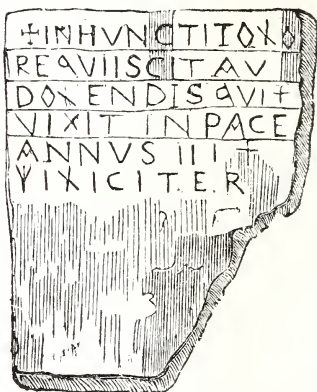 +INHVNCTITOLO
REQVIISCITAV
DOLENDISQVI+
VIXIT INPACE
ANNVS III +
FILICIT.E.R